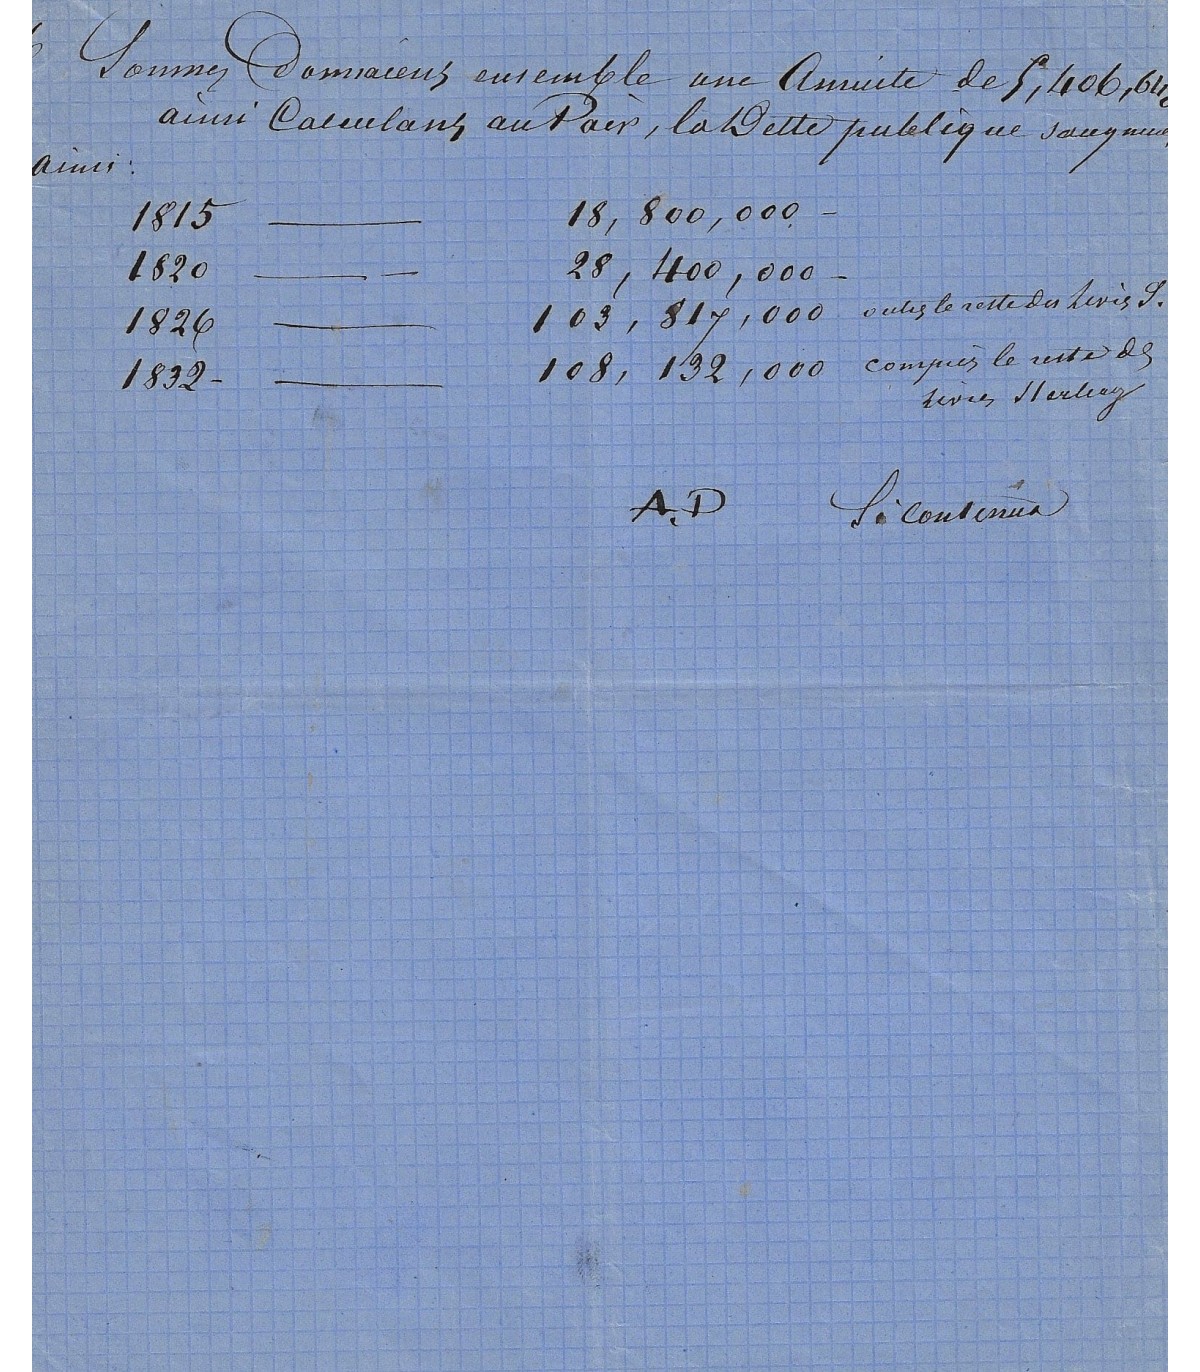 Sommes Donnaient ensemble une Annuité de 5,406,64
ainsi Calculant au Pair, la Dette publique s'augmen
ainsi:
1815 — 18,800,000 -
1820 — - 28,400,000 -
1826 — 103,817,000 outre le reste des livres S.
1832 - — 108,132,000 compris le reste des
livres Sterling
A.D Si continua